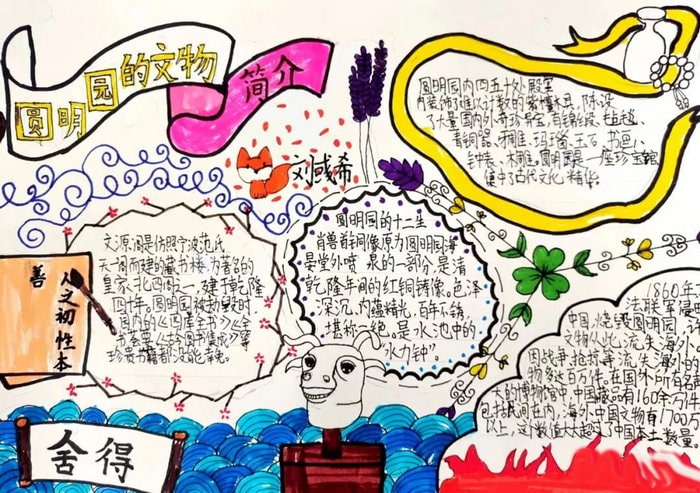 圆明园的文物
简介
刘希
圆明园内四五十处殿堂
内装饰了难以计数的紫檀木具,陈设
了大量国内外奇珍异宝,有锦绫、毡毯、
青铜器、牙雕、玛瑙、玉石、书画、
钟表、木雕,圆明园是一座珍宝馆
集中了古代文化精华。
文源阁是仿照宁波范氏
天一阁而建的藏书楼,为著名的
皇家、北四阁之一,建于乾隆
四十年。圆明园被劫毁时
园内的《四库全书》《全
书荟要》《古今图书集成》等
珍贵书籍都没能幸免。
圆明园的十二生
肖兽首铜像原为圆明园海
晏堂外喷泉的一部分,是清
乾隆年间的红铜铸像。色泽
深沉,内蕴精光,百年不锈
堪称一绝。是水池中的
“水力钟”。
1860年
法联军侵
中国,烧毁圆明园,
文物从此流失海外。
因战争、抢掠等流失海外的
物多达百万件。在国外所有
大的博物馆中,中国藏品有160余万
包括民间在内,海外中国文物有1700万
以上,这个数值大大超过了中国本土数量。
人之初性本
善
舍得